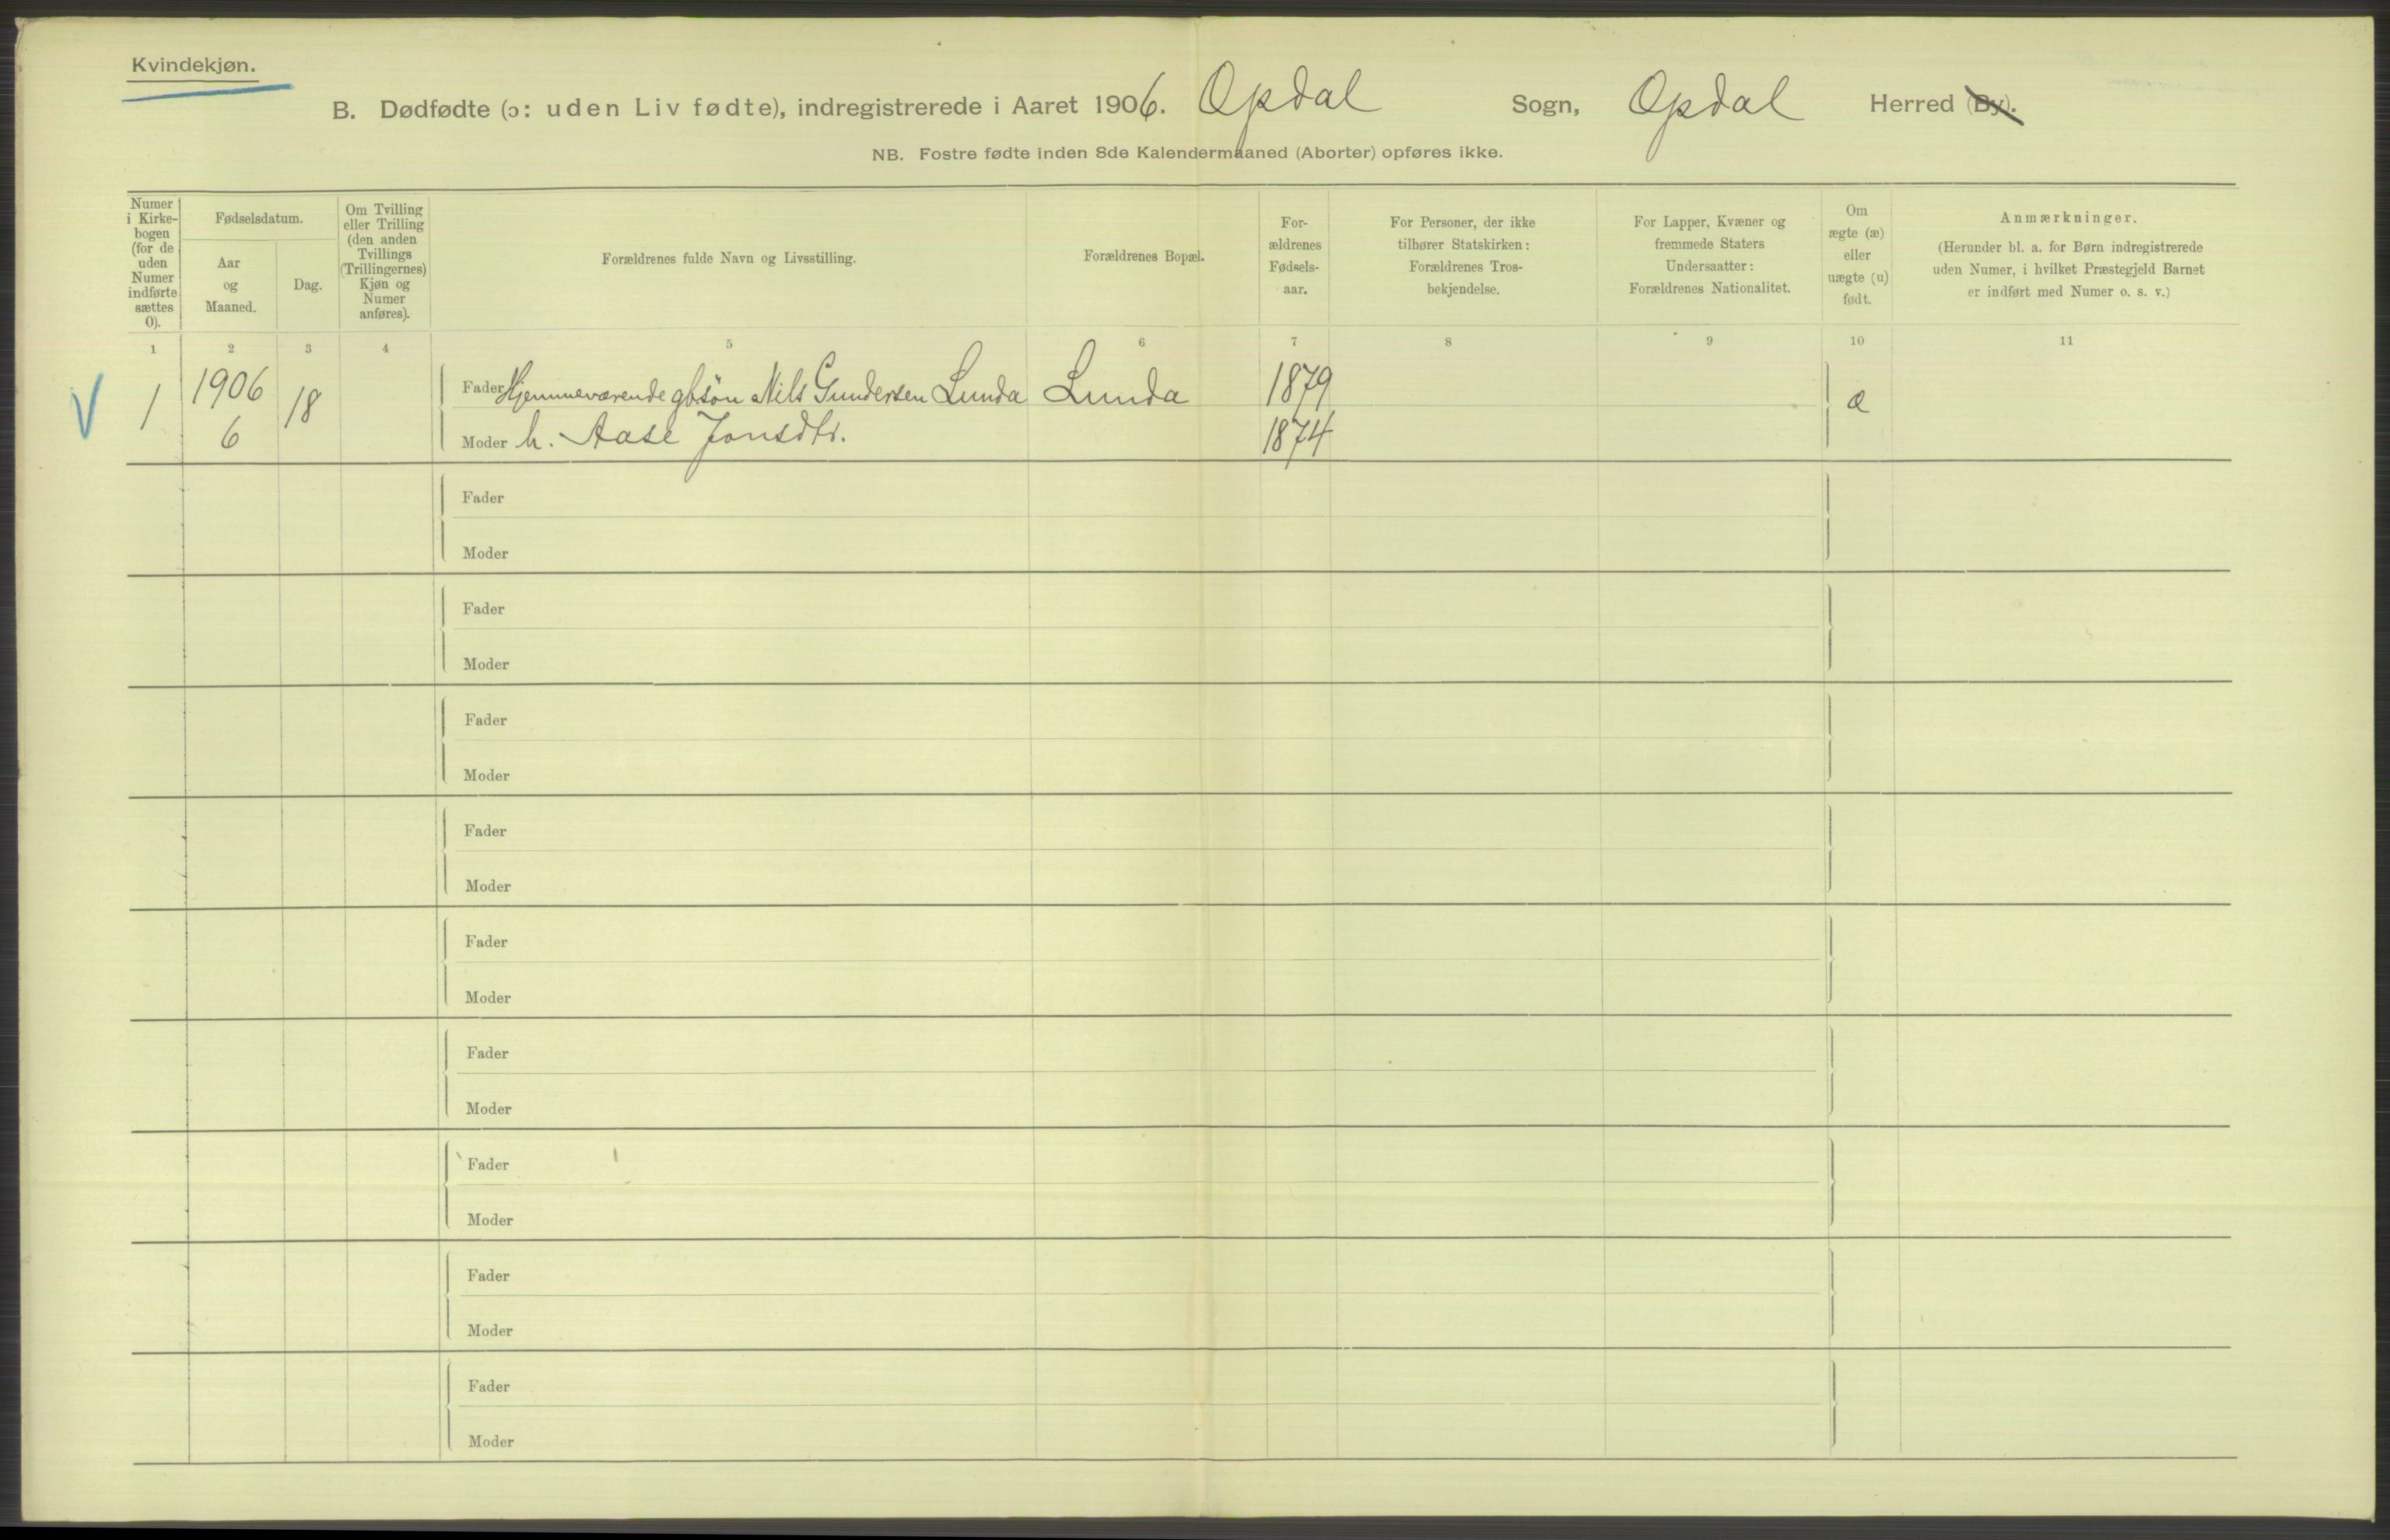 Kvindekjøn.
B. Dødfødte (ɔ: uden Liv fødte), indregistrerede i Aaret 1906. Opdal Sogn, Opdal Herred (By).
NB. Fostre fødte inden 8de Kalendermaaned (Aborter) opføres ikke.
Numer
i Kirke-
bogen
(for de
uden
Numer
indførte
sættes
0).
Fødselsdatum.
Aar
og
Maaned.
Dag.
Om Tvilling
eller Trilling
(den anden
Tvillings
(Trillingernes)
Kjøn og
Numer
anføres).
Forældrenes fulde Navn og Livsstilling.
Forældrenes Bopæl.
For-
ældrenes
Fødsels-
aar.
For Personer, der ikke
tilhører Statskirken:
Forældrenes Tros-
bekjendelse.
For Lapper, Kvæner og
fremmede Staters
Undersaatter:
Forældrenes Nationalitet.
Om
ægte (æ)
eller
uægte (u)
født.
Anmærkninger.
(Herunder bl. a. for Børn indregistrerede
uden Numer, i hvilket Præstegjeld Barnet
er indført med Numer o. s. v.)
1 2 3 4 5 6 7 8 9 10 11
V 1 1906 18 Fader Hjemmeværende gbsön Nils Gundersen Lunda Lunda 1879 æ
6 Moder h. Aase Jonsdtr. 1874
Fader
Moder
Fader
Moder
Fader
Moder
Fader
Moder
Fader
Moder
Fader
Moder
Fader
Moder
Fader
Moder
Fader
Moder